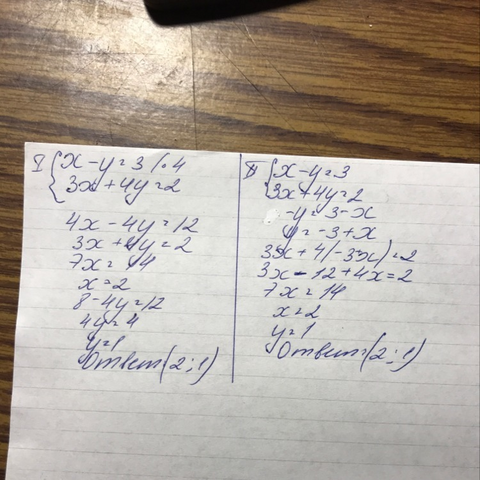 I { x - y = 3 / · 4
3x + 4y = 2
4x - 4y = 12
3x + 4y = 2
7x = 14
x = 2
8 - 4y = 12
4y = 4
y = 1
Ответ (2; 1)
II { x - y = 3
3x + 4y = 2
-y = 3 - x
y = -3 + x
3x + 4(-3+x) = 2
3x - 12 + 4x = 2
7x = 14
x = 2
y = 1
Ответ (2; 1)